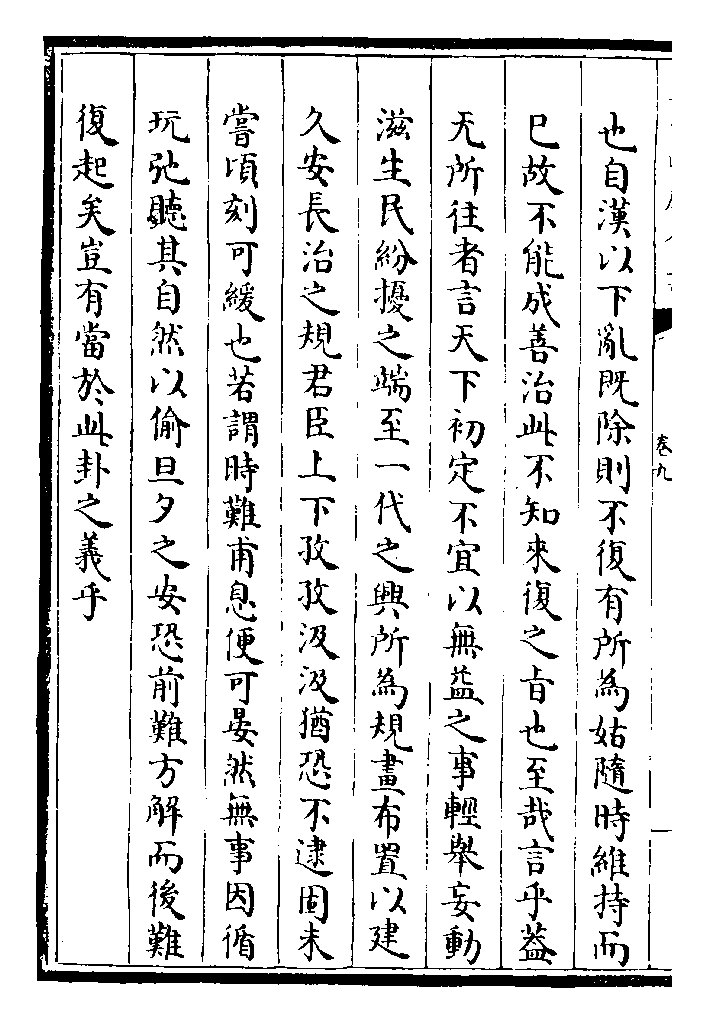 也自漢以下亂既除則不復有所為姑隨時維持而
已故不能成善治此不知來復之旨也至哉言乎葢
无所往者言天下初定不宜以無益之事輕舉妄動
滋生民紛擾之端至一代之興所為規畫布置以建
久安長治之規君臣上下孜孜汲汲猶恐不逮固未
嘗頃刻可緩也若謂時難甫息便可晏然無事因循
玩弛聽其自然以偷旦夕之安恐前難方解而後難
復起矣豈有當於此卦之義乎
卷九